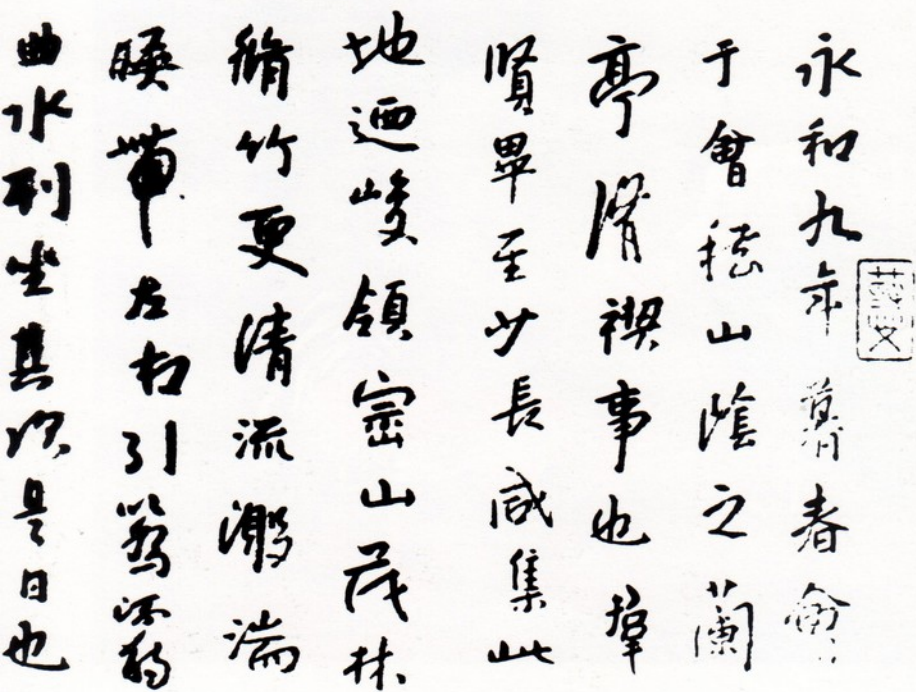 永和九年暮春會
于會稽山陰之蘭
亭脩禊事也羣
賢畢至少長咸集此
地迺峻領崇山茂林
脩竹更清流激湍
暎帶左右引以為流觴
曲水列坐其次是日也